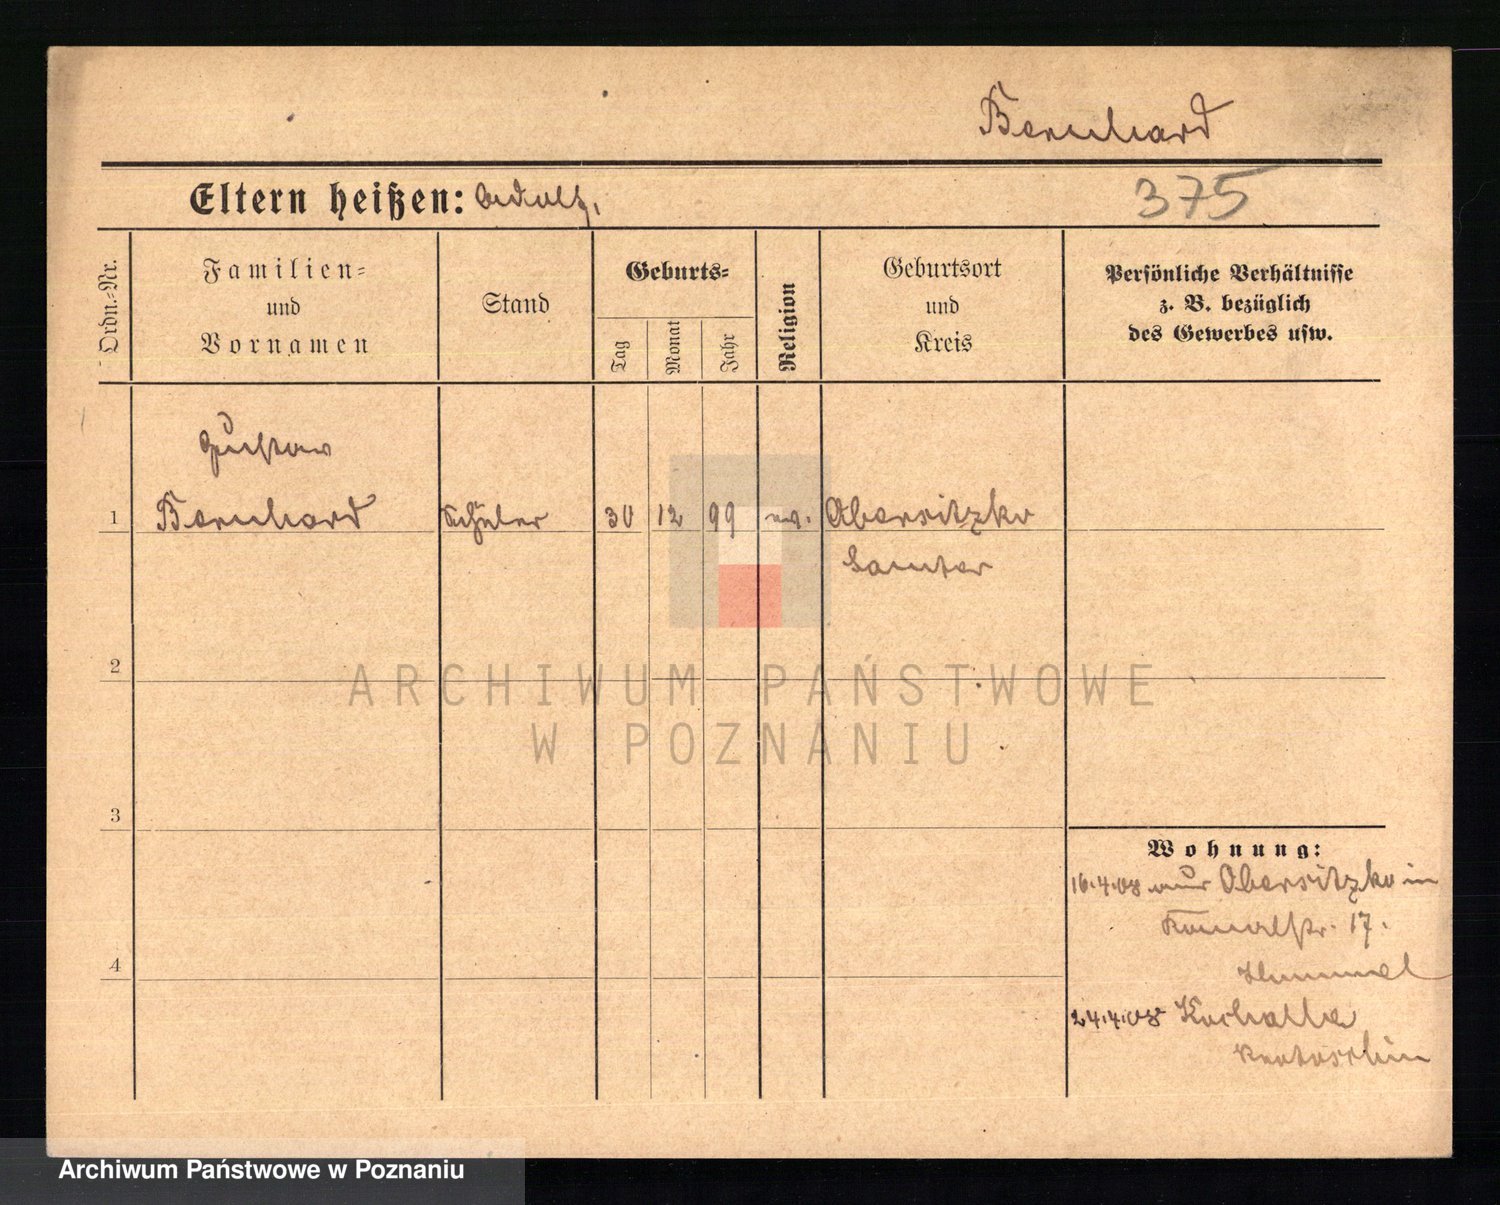 Bernhard
Eltern heißen: Adolf,
375
Ordn.-Nr.
Familien-
und
Vornamen
Stand
Geburts-
Tag
Monat
Jahr
Religion
Geburtsort
und
Kreis
Persönliche Verhältnisse
z. B. bezüglich
des Gewerbes usw.
Gustav
1 Bernhard Schüler 30 12 99 ev. Obersitzko
Samter
2
3
4
Wohnung:
16.4.08 aus Obersitzko in
17.
Hummel
24.4.08 Kochalle
Krotoschin
ARCHIWUM PAŃSTWOWE
W POZNANIU
Archiwum Państwowe w Poznaniu